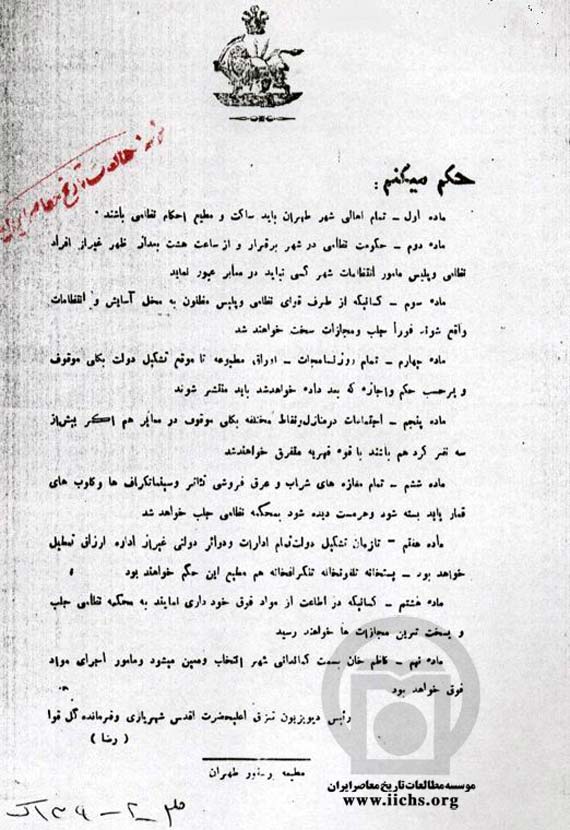 حکم میکنم:
ماده اول – تمام اهالی شهر طهران باید ساکت و مطیع احکام نظامی باشند.
ماده دوم – حکومت نظامی در شهر برقرار و از ساعت هشت بعداز ظهر غیر از افراد
نظامی و پلیس مامور انتظامات شهر کسی نباید در معابر عبور نماید
ماده سوم – کسانیکه از طرف قوای نظامی و پلیس مظنون به مخل آسایش و انتظامات
واقع شوند فوراً جلب و مجازات سخت خواهند شد
ماده چهارم – تمام روزنامجات – اوراق مطبوعه تا موقع تشکیل دولت بکلی موقوف
و برحسب حکم و اجازه که بعد داده خواهدشد باید منتشر شوند
ماده پنجم – اجتماعات در منازل و نقاط مختلفه بکلی موقوف در معابر هم اگر بیش از
سه نفر گرد هم باشند با قوه قهریه متفرق خواهندشد
ماده ششم – تمام مغازه های شراب و عرق فروشی تئاتر و سینماتگراف ها و کلوب های
قمار باید بسته شود و هرمست دیده شود بمحکمه نظامی جلب خواهد شد
ماده هفتم – تازمان تشکیل دولت تمام ادارات و دوائر دولتی غیراز اداره ارزاق تعطیل
خواهد بود – پستخانه تلفونخانه تلگرافخانه هم مطیع این حکم خواهند بود
ماده هشتم – کسانیکه در اطاعت از مواد فوق خود داری نمایند به محکمه نظامی جلب
و بسخت ترین مجازات ها خواهند رسید
ماده نهم – کاظم خان بسمت کماندانی شهر انتخاب و معین میشود و مامور اجرای مواد
فوق خواهد بود
رئیس دیویزیون قزاق اعلیحضرت اقدس شهریاری و فرمانده کل قوا
(رضا)
مطبعه طهران
موسسه مطالعات تاریخ معاصر ایران
www.iichs.org